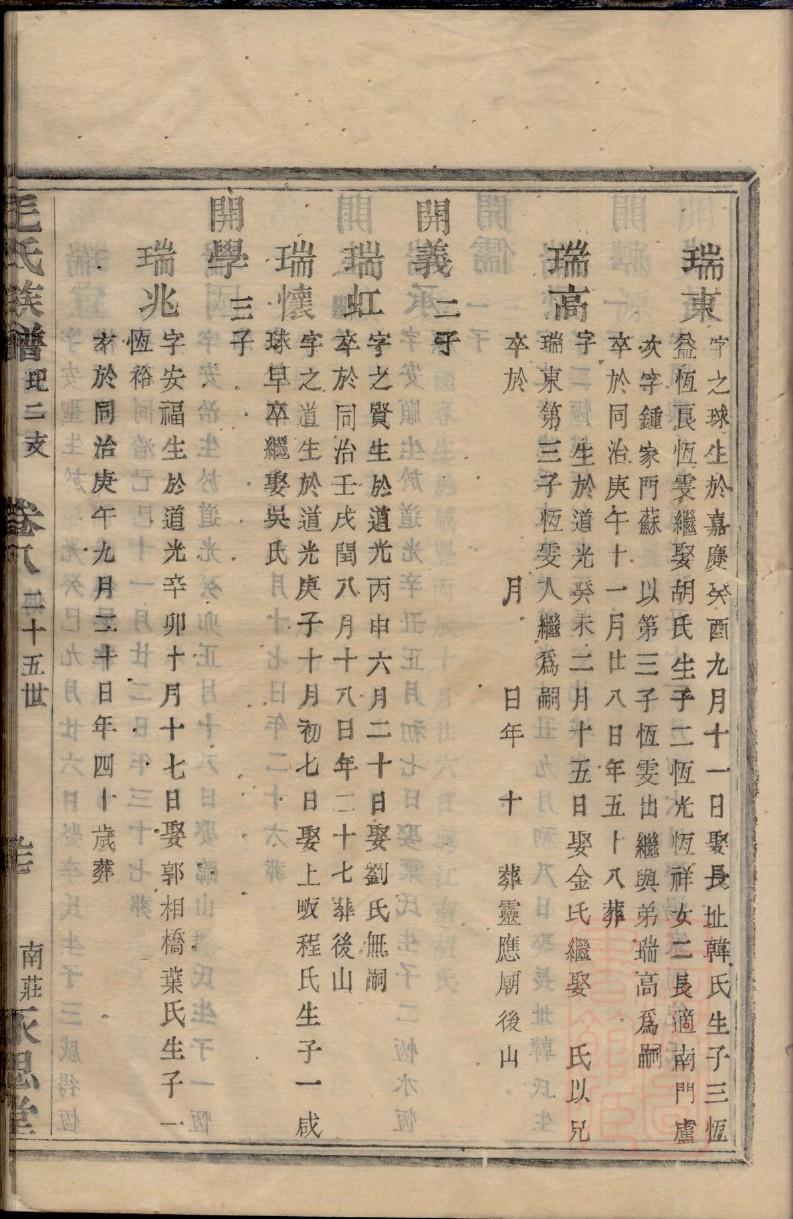 瑞東
字之球生於嘉慶癸酉九月十一日娶長址韓氏生子三恆
益恆良恆雯繼娶胡氏生子二恆光恆祥女二長適南門盧
次字鍾家門蘇 以第三子恆雯出繼與弟瑞高爲嗣
卒於同治庚午十一月廿八日年五十八葬
瑞高
字 生於道光癸未二月十五日娶金氏繼娶 氏以兄
瑞東第三子恆雯入繼爲嗣
卒於 月 日年 十 葬靈應廟後山
開義 二子
瑞虹
字之賢生於道光丙申六月二十日娶劉氏無嗣
卒於同治壬戌閏八月十八日年二十七葬後山
瑞懷
字之道生於道光庚子十月初七日娶上畈程氏生子一咸
球早卒繼娶吳氏
開學 三子
瑞兆
字安福生於道光辛卯十月十七日娶郭相橋葉氏生子一
恆裕
卒於同治庚午九月二十日年四十歲葬
毛氏族譜 二支 卷八 二十五世 南莊永思堂